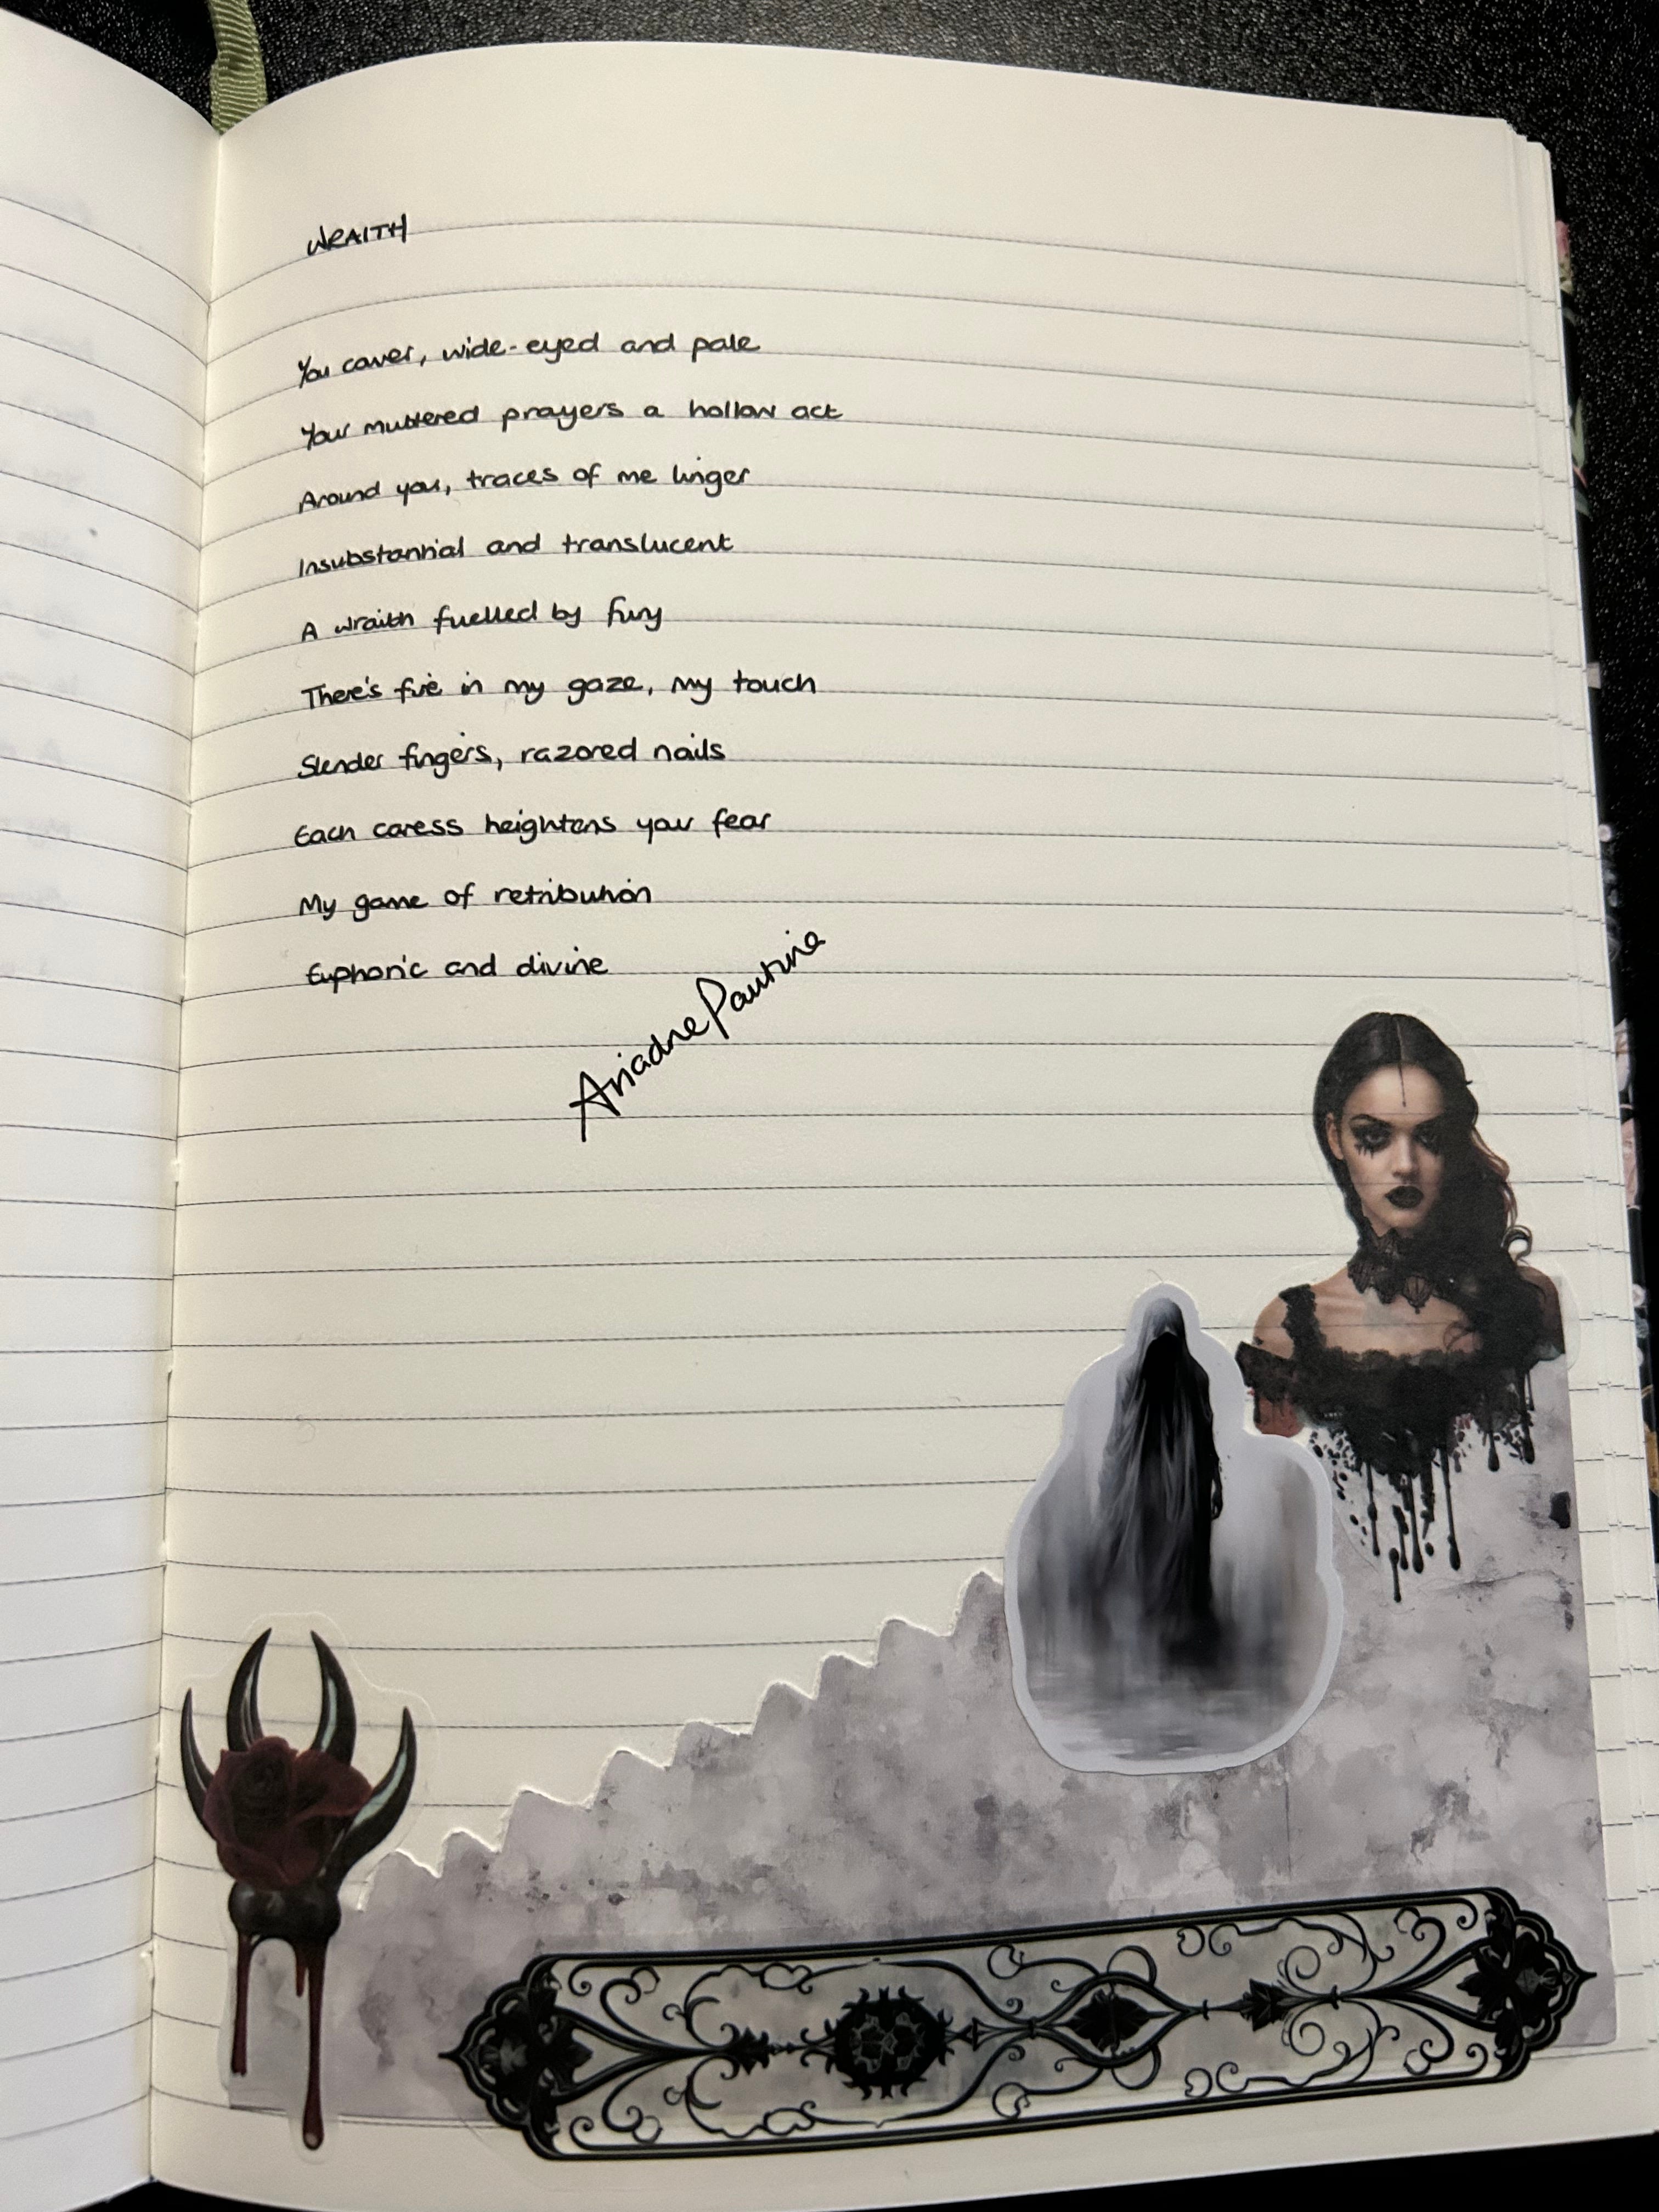 WRAITH
You cower, wide-eyed and pale
Your muttered prayers a hollow act
Around you, traces of me linger
Insubstantial and translucent
A wraith fuelled by fury
There's fire in my gaze, my touch
Slender fingers, razored nails
Each caress heightens your fear
My game of retribution
Euphoric and divine
Ariadne Pautina